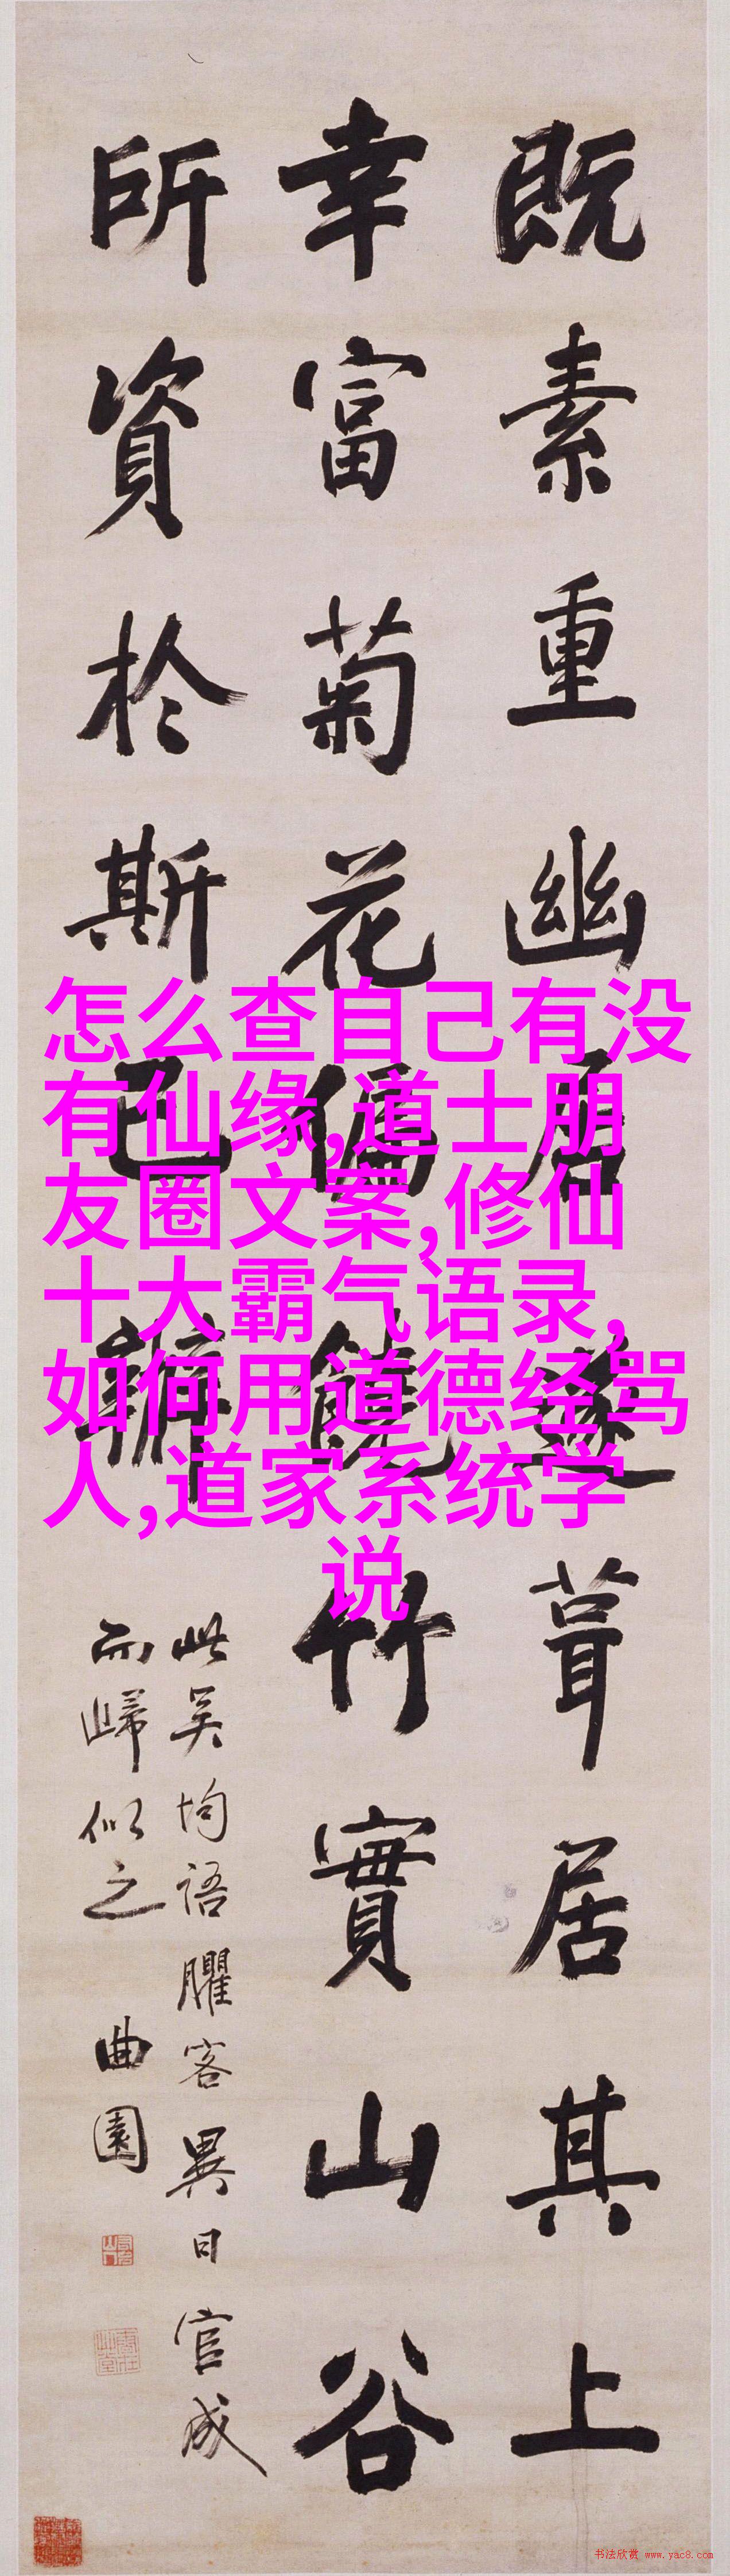 既素重幽居遂葺居其上
幸富菊花偏饒竹實山谷
所資於斯已辦
此吴均語臞客異日官成
而歸似之 曲園
怎么查自己有没
有仙缘,道士朋
友圈文案,修仙
十大霸气语录,
如何用道德经骂
人,道家系统学
说
书法欣赏 www.yac8.com